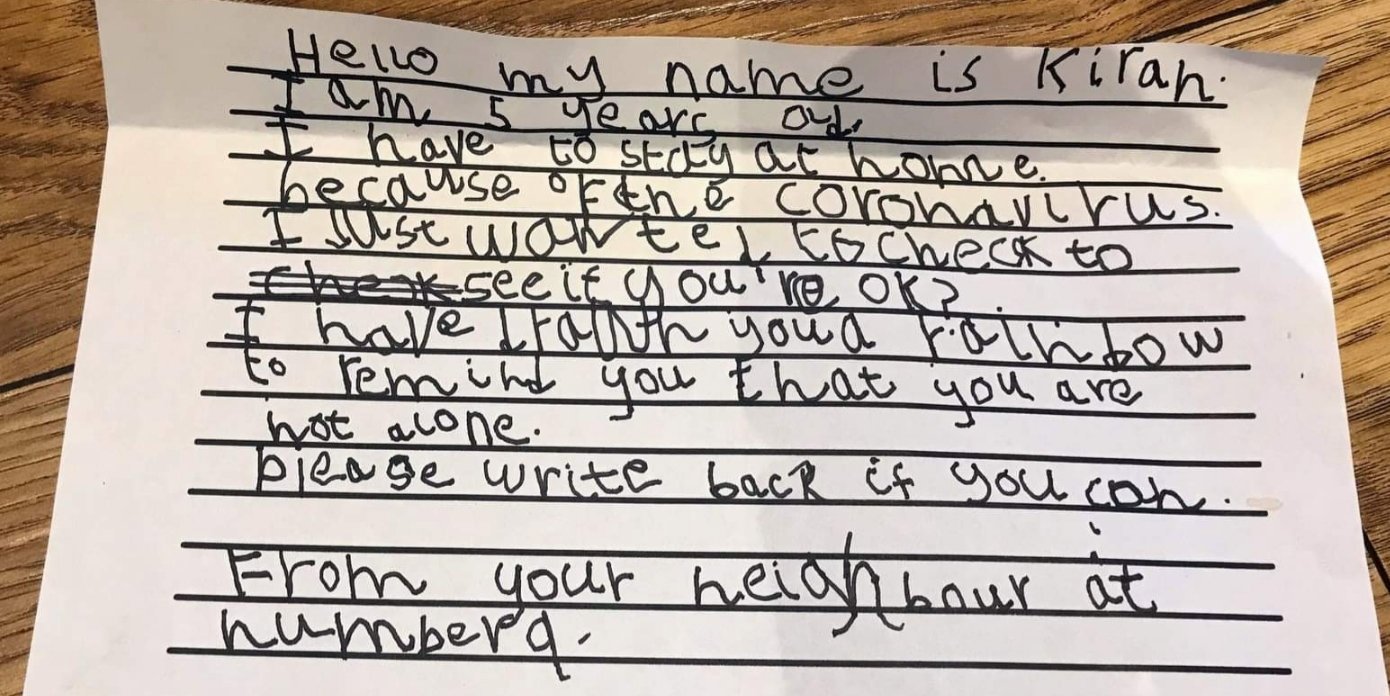 Hello my name is Kiran.
I am 5 years old.
I have to stay at home.
because of the coronavirus.
I Just wanted to check to
check see if you're ok?
I have drawn you a rainbow
to remind you that you are
not alone.
please write back if you can.
From your neighbour at
number 9.